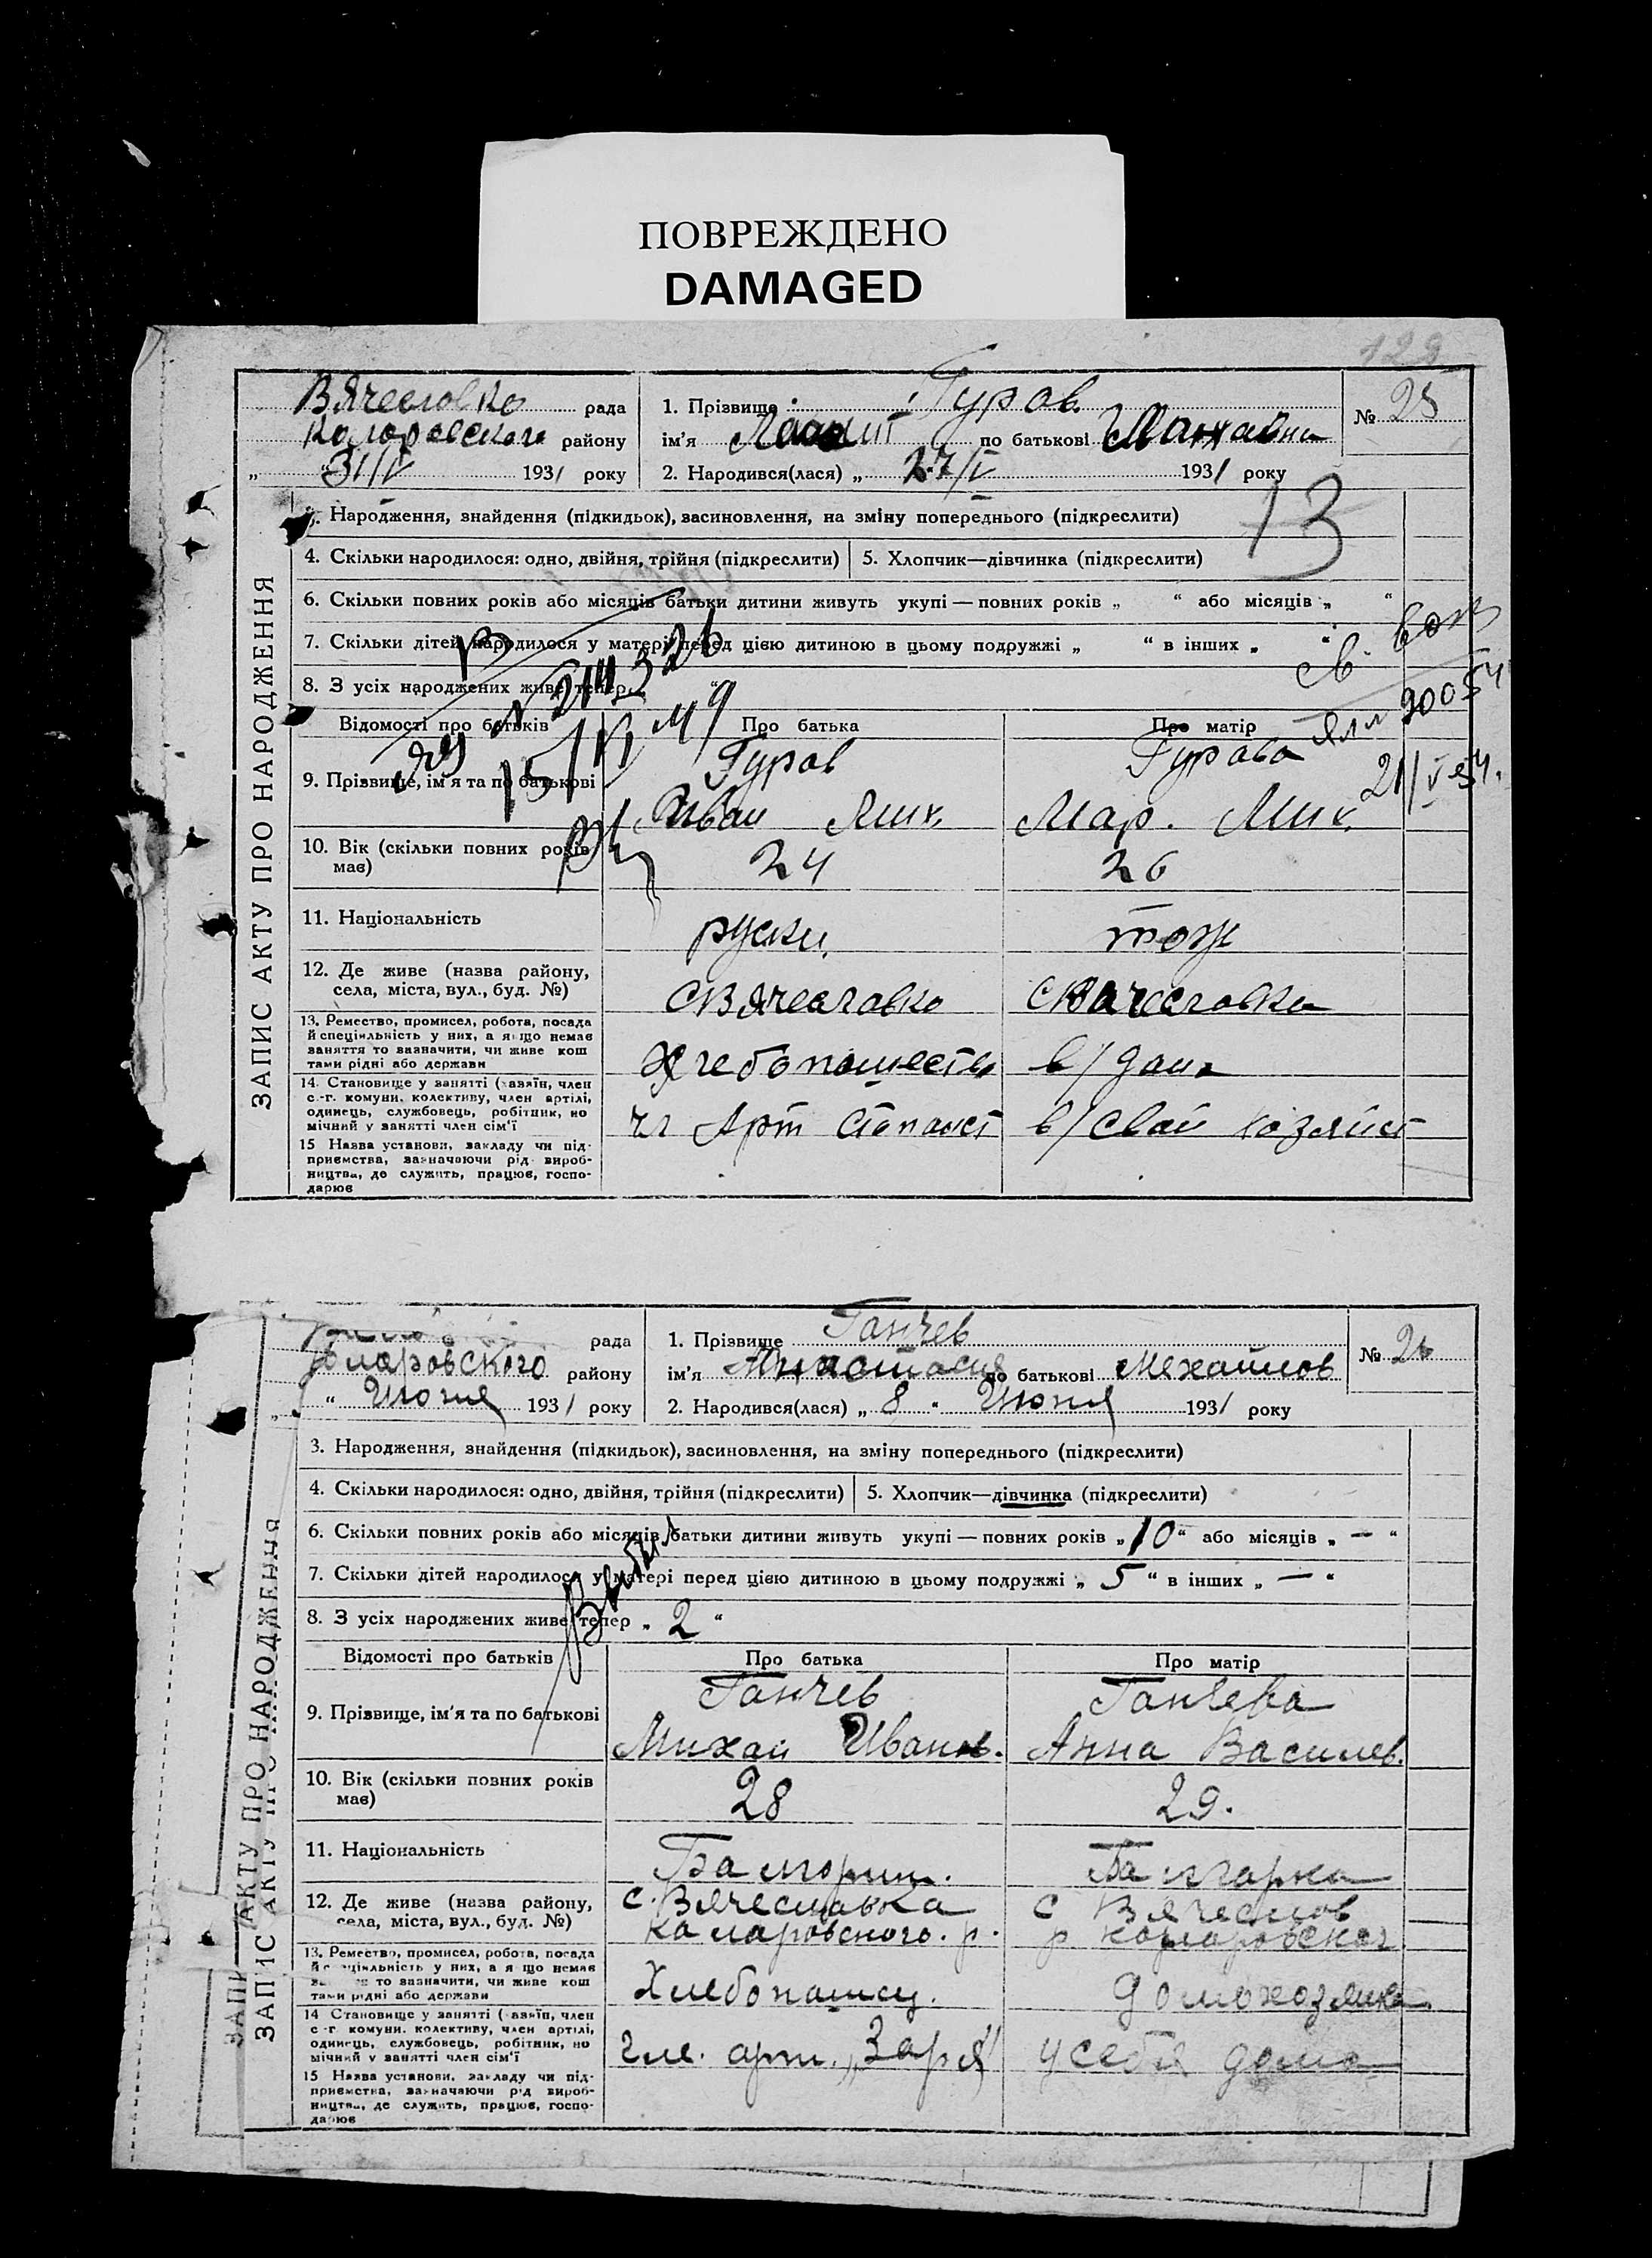 ПОВРЕЖДЕНО
DAMAGED
128
Вячесловко рада
района району
31/V 1931 року
1. Прізвище Гуров
ім'я по батькові
2. Народився(лася) „ 27/V 1931 року
№ 25
13
ЗАПИС АКТУ ПРО НАРОДЖЕННЯ
3. Народження, знайдення (підкидьок), засиновлення, на зміну попереднього (підкреслити)
4. Скільки народилося: одно, двійня, трійня (підкреслити) 5. Хлопчик—дівчинка (підкреслити)
6. Скільки повних років або місяців батьки дитини живуть укупі — повних років „ “ або місяців „ “
7. Скільки дітей народилося у матері перед цією дитиною в цьому подружжі „ “ в інших „ “
8. З усіх народжених живе тепер „ “
Відомості про батьків Про батька Про матір
9. Прізвище, ім'я та по батькові
Гуров Гурова
Иван Мик. Мар. Мик.
21/V 54.
10. Вік (скільки повних років має) 24 26
11. Національність руски. тож
12. Де живе (назва району, села, міста, вул., буд. №) С Вячеславко С Вячеславка
13. Ремество, промисел, робота, посада
й спеціяльність у них, а якщо немає
заняття то вазначити, чи живе кош
тами рідні або держави
Хлебопашеств в/дома
14. Становище у занятті (хазяїн, член
с.-г. комуни, колективу, член артілі,
одинець, службовець, робітник, по
мічний у занятті член сім'ї
чл Арт в/свой хозяйст
15 Назва установи, закладу чи під-
приємства, зазначаючи рід вироб-
ництва, де служить, працює, госпо-
дарює
рада
Комаровского району
“ Июня 1931 року
1. Прізвище Ганчев
ім'я Анастасия по батькові Михайлов
2. Народився(лася) „ 8 “ Июня 1931 року
№ 26
ЗАПИС АКТУ ПРО НАРОДЖЕННЯ
3. Народження, знайдення (підкидьок), засиновлення, на зміну попереднього (підкреслити)
4. Скільки народилося: одно, двійня, трійня (підкреслити) 5. Хлопчик—дівчинка (підкреслити)
6. Скільки повних років або місяців батьки дитини живуть укупі — повних років „ 10 “ або місяців „ — “
7. Скільки дітей народилося у матері перед цією дитиною в цьому подружжі „ 5 “ в інших „ — “
8. З усіх народжених живе тепер „ 2 “
Відомості про батьків Про батька Про матір
9. Прізвище, ім'я та по батькові
Ганчев Ганчева
Михаил Иванов. Анна Василев.
10. Вік (скільки повних років має) 28 29.
11. Національність Балгорин. Балгарка
12. Де живе (назва району, села, міста, вул., буд. №)
с. Вячеславка с Вячеслов
Камаровского. р. р Комаровског
13. Ремество, промисел, робота, посада
й спеціяльність у них, а якщо немає
заняття то вазначити, чи живе кош
тами рідні або держави
Хлебопашец. домохозяика
14 Становище у занятті (хазяїн, член
с.-г. комуни, колективу, член артілі,
одинець, службовець, робітник, по
мічний у занятті член сім'ї
Чле. арт. „Заря“ у себя дома
15 Назва установи, закладу чи під-
приємства, зазначаючи рід вироб-
ництва, де служить, працює, госпо-
дарює